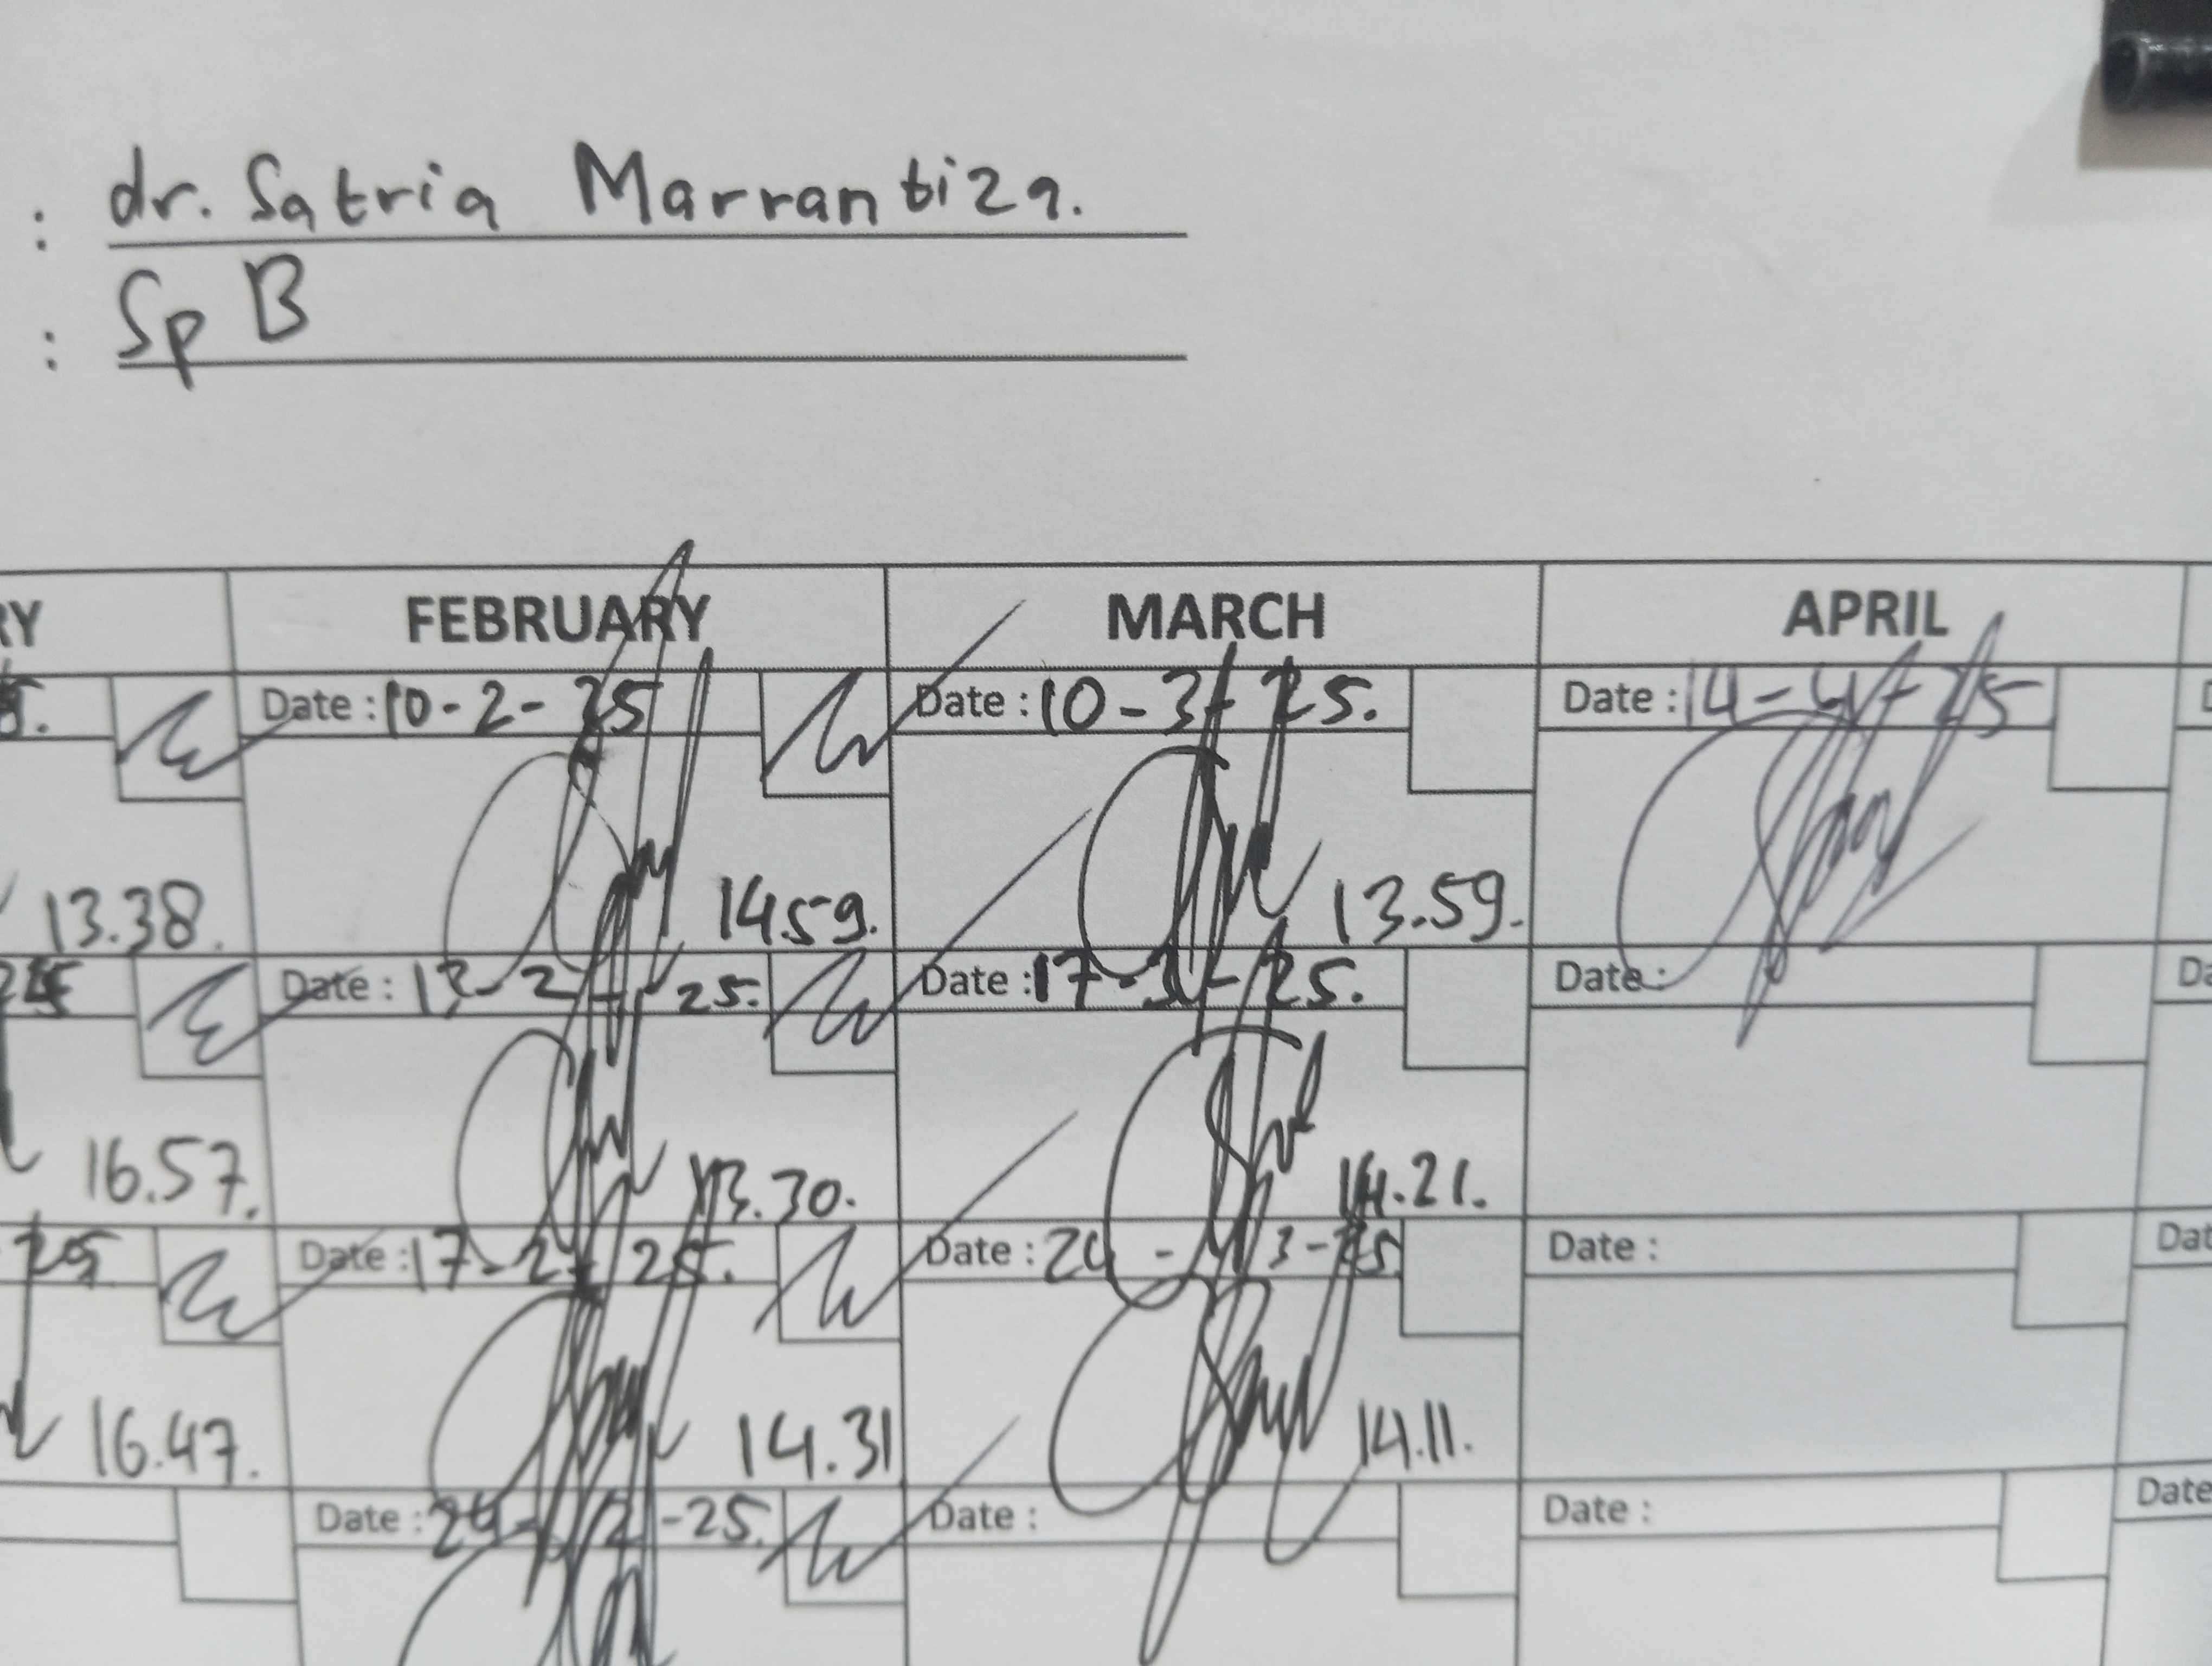 : dr. Satria Marrantiza.
: Sp B
RY FEBRUARY MARCH APRIL
Date : 10-2-25 Date : 10-3-25. Date : 14-4-25
13.38. 14.59. 13.59.
Date : 25. Date : 17-3-25. Date :
16.57. 13.30. 14.21.
25 Date : 17-2-25. Date : 24-3-25 Date :
16.47. 14.31 14.11.
Date : 24-2-25. Date : Date : Date